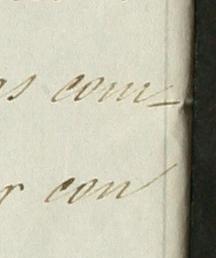 as com-
r con